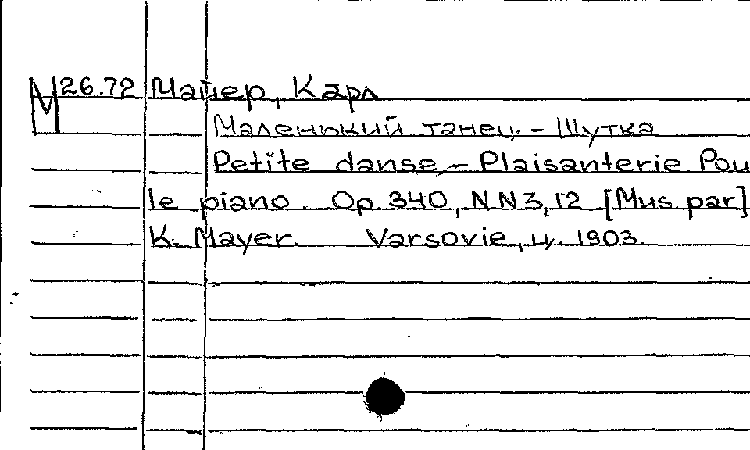 М 26.72 Майер, Карл
Маленький танец. - Шутка
Petite danse, - Plaisanterie Pou
le piano. Op. 340, NN 3, 12 [Mus par]
K. Mayer. Varsovie, ц. 1903.